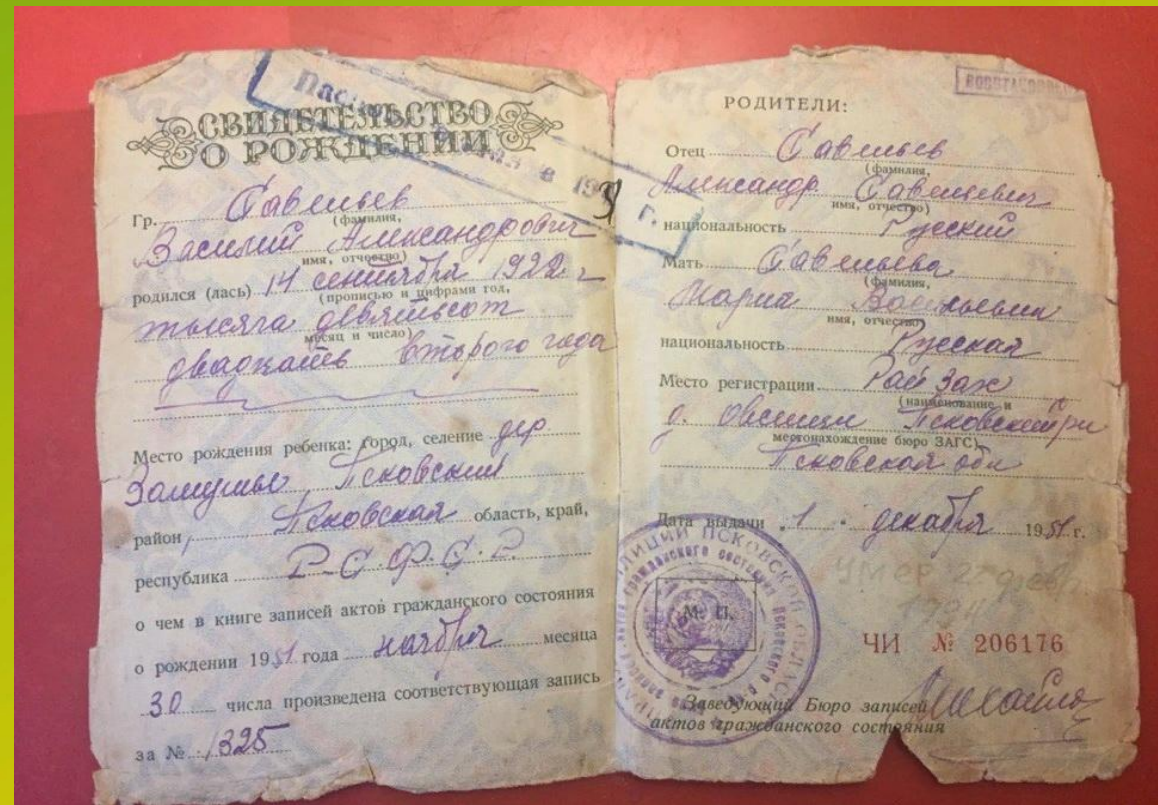 СВИДЕТЕЛЬСТВО
О РОЖДЕНИИ
Гр. Савельев
(фамилия,
Василий Александрович
имя, отчество)
родился (лась) 14 сентября 1922 г
(прописью и цифрами год,
тысяча девятьсот
месяц и число)
двадцать второго года
Место рождения ребенка: город, селение дер.
Псковский
район, Псковская область, край,
республика Р.С.Ф.С.Р.
о чем в книге записей актов гражданского состояния
о рождении 1951 года ноября месяца
30 числа произведена соответствующая запись
за № 1325
РОДИТЕЛИ:
Отец Савельев
(фамилия,
Александр Савельевич
имя, отчество)
национальность Русский
Мать Савельева
(фамилия,
Мария
имя, отчество)
национальность Русская
Место регистрации Рай Загс
(наименование и
д.
местонахождение бюро ЗАГС)
Псковской обл
Дата выдачи 1 декабря 1951 г.
М. П.
ЧИ № 206176
Заведующий Бюро записей
актов гражданского состояния